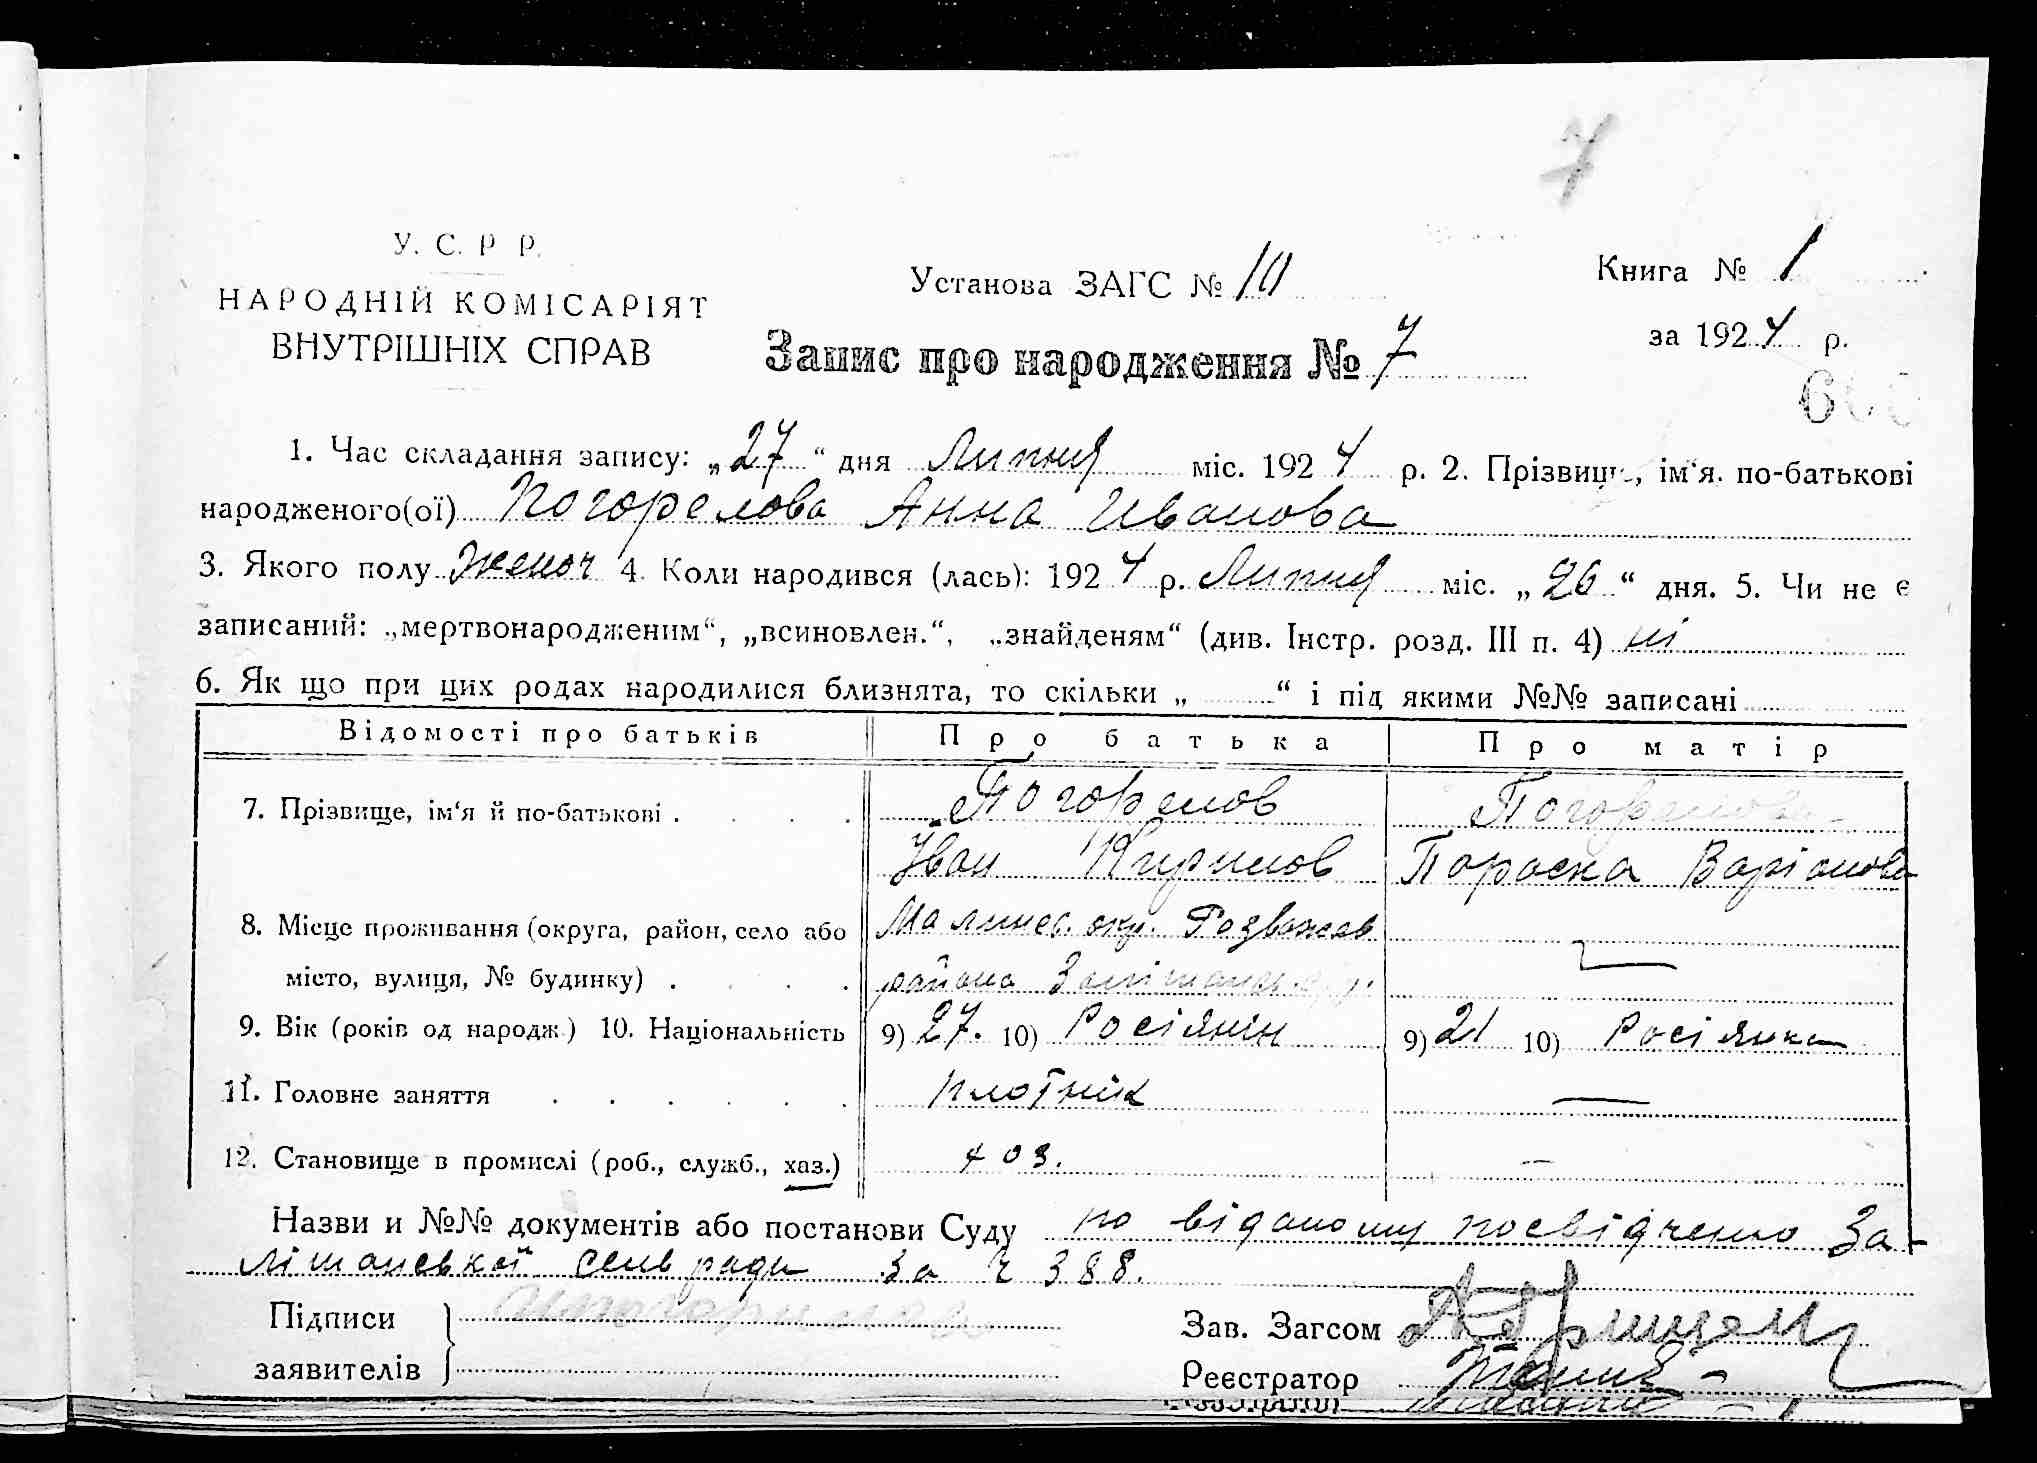 7
У. С. Р. Р.
НАРОДНІЙ КОМІСАРІЯТ
ВНУТРІШНІХ СПРАВ
Установа ЗАГС № 10
Книга № 1
за 1924 р.
Запис про народження № 7
1. Час складання запису: „27“ дня Липня міс. 1924 р. 2. Прізвище, ім‘я. по-батькові
народженого(ої) Погорелова Анна Иванова
3. Якого полу женоч 4. Коли народився (лась): 1924 р. Липня міс. „26“ дня. 5. Чи не є
записаний: „мертвонародженим“, „всиновлен.“, „знайденям“ (див. Інстр. розд. III п. 4) ні
6. Як що при цих родах народилися близнята, то скільки „ “ і під якими №№ записані
Відомості про батьків Про батька Про матір
7. Прізвище, ім‘я й по-батькові . . . . Погорелов Погорелова
Іван Кирилов Параска
8. Місце проживання (округа, район, село або Малинсь. окр. Розважев
місто, вулиця, № будинку) . . . . района
9. Вік (років од народж.) 10. Національність 9) 27. 10) Росіянін 9) 21 10) Росіянка
11. Головне заняття . . . . . . плотнік —
12. Становище в промислі (роб., служб., хаз.) хоз. —
Назви и №№ документів або постанови Суду по віданому посвідченю За-
лішанської сельради за ч 388.
Підписи
заявителів
Зав. Загсом
Реєстратор